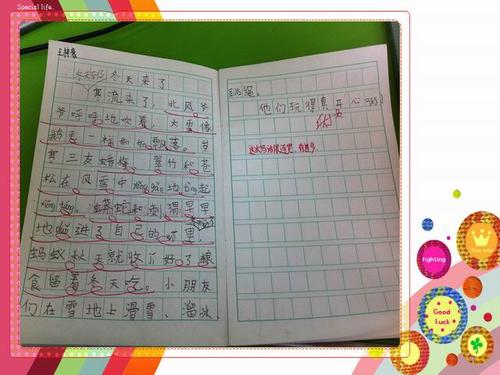 Special life.
冬天来了
寒流来了,北风爷
爷呼呼地吹着,大雪像
鹅毛一样 飘落。岁
寒三友蜡梅、翠竹和苍
松在风雪中 地tǐng起
蛇和刺猬早早
地 进了自己的 里,
蚂蚁秋天就收了好多粮
食留着冬天吃。小朋友
们在雪地上滑雪、溜冰
跳绳。
他们玩得真开心啊!
优
这次写话很连贯,有进步
Fighting
Good
Luck